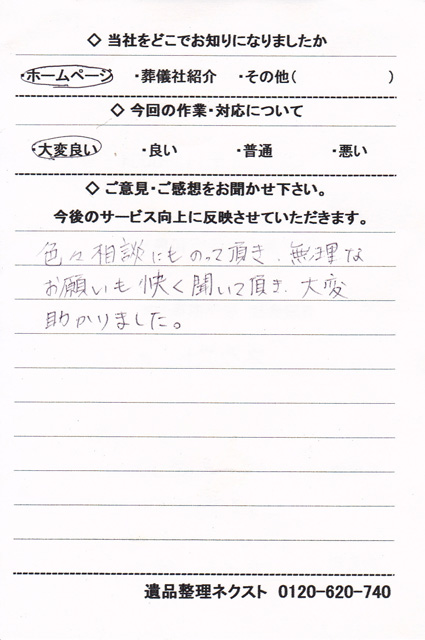 ◇ 当社をどこでお知りになりましたか
・ホームページ ・葬儀社紹介 ・その他( )
◇ 今回の作業・対応について
・大変良い ・良い ・普通 ・悪い
◇ ご意見・ご感想をお聞かせ下さい。
今後のサービス向上に反映させていただきます。
色々相談にものって頂き、無理な
お願いも快く聞いて頂き、大変
助かりました。
遺品整理ネクスト 0120-620-740